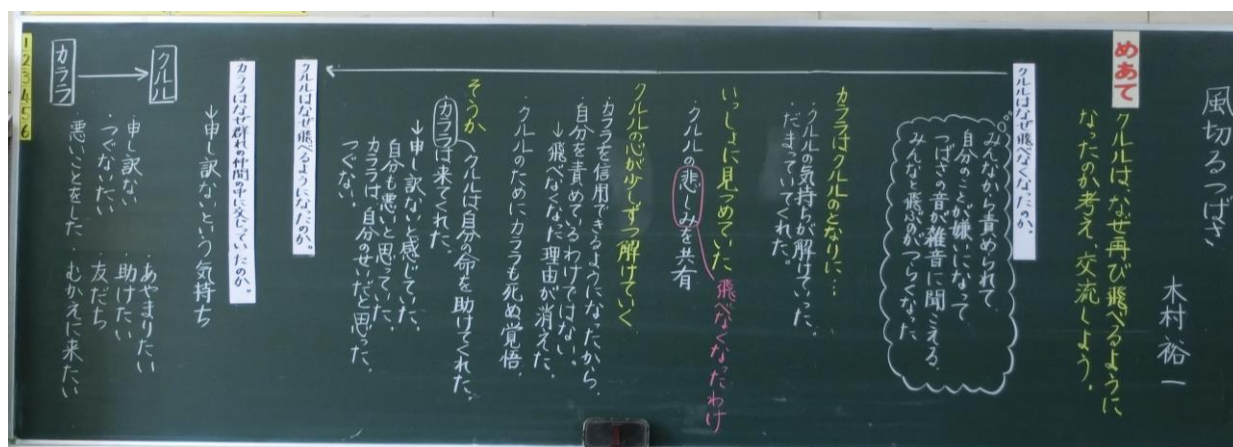 風切るつばさ
木村裕一
めあて
クルルは、なぜ再び飛べるように
なったのか考え、交流しよう。
クルルはなぜ飛べなくなったのか。
みんなから責められて
自分のことが嫌いになって
つばさの音が雑音に聞こえる
みんなと飛ぶのがつらくなった
カララはクルルのとなりに…
・クルルの気持ちが解けていった。
・だまっていてくれた。
いっしょに見つめていた
クルルの悲しみを共有
飛べなくなったわけ
クルルの心が少しずつ解けていく
・カララを信用できるようになったから。
・自分を責めているわけではない。
→飛べなくなた理由が消えた。
・クルルのためにカララも死ぬ覚悟。
そうか
クルルは自分の命を助けてくれた。
カララは来てくれた。
→申し訳ないと感じていた。
自分も悪いと思っていた。
カララは、自分のせいだと思った。
つぐない。
クルルはなぜ飛べるようになったのか。
カララはなぜ群れの仲間の中に交じっていたのか。
→申し訳ないという気持ち
クルル
・申し訳ない
・つぐないたい
・悪いことをした
・あやまりたい
・助けたい
・友だち
・むかえに来たい
カララ
1
2
3
4
5
6